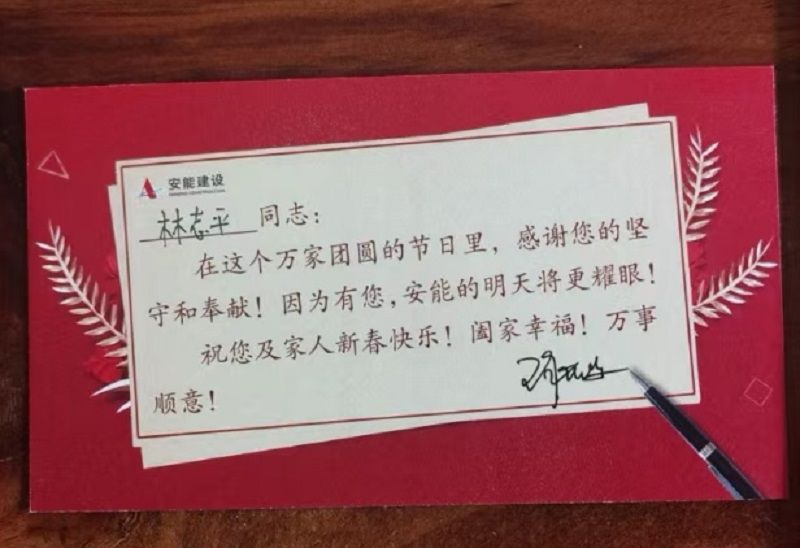 安能建设
林志平 同志：
在这个万家团圆的节日里，感谢您的坚
守和奉献！因为有您，安能的明天将更耀眼！
祝您及家人新春快乐！阖家幸福！万事
顺意！